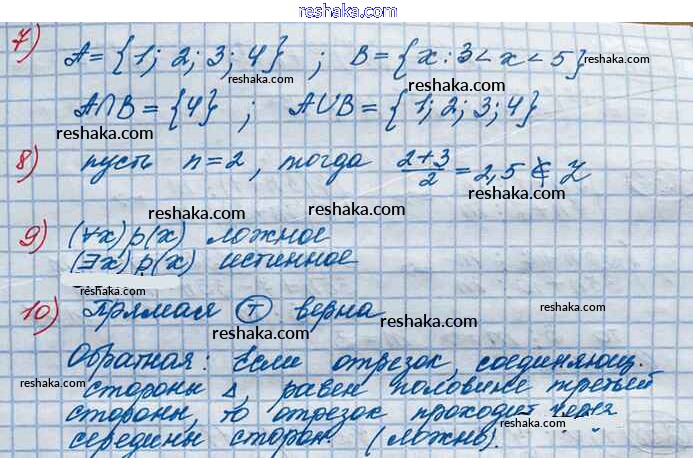 reshaka.com
7) A = {1; 2; 3; 4} ; B = {x : 3 < x < 5}
reshaka.com reshaka.com
A∩B = {4} ; A∪B = {1; 2; 3; 4}
reshaka.com reshaka.com
8) пусть n = 2, тогда (2+3)/2 = 2,5 ∉ Z
reshaka.com reshaka.com
9) (∀x) p(x) ложное
(∃x) p(x) истинное
reshaka.com
10) Прямая Т верна
reshaka.com
Обратная: Если отрезок, соединяющ.
reshaka.com
стороны △, равен половине третьей
reshaka.com
стороны, то отрезок проходит через
reshaka.com reshaka.com
середины сторон. (ложно).